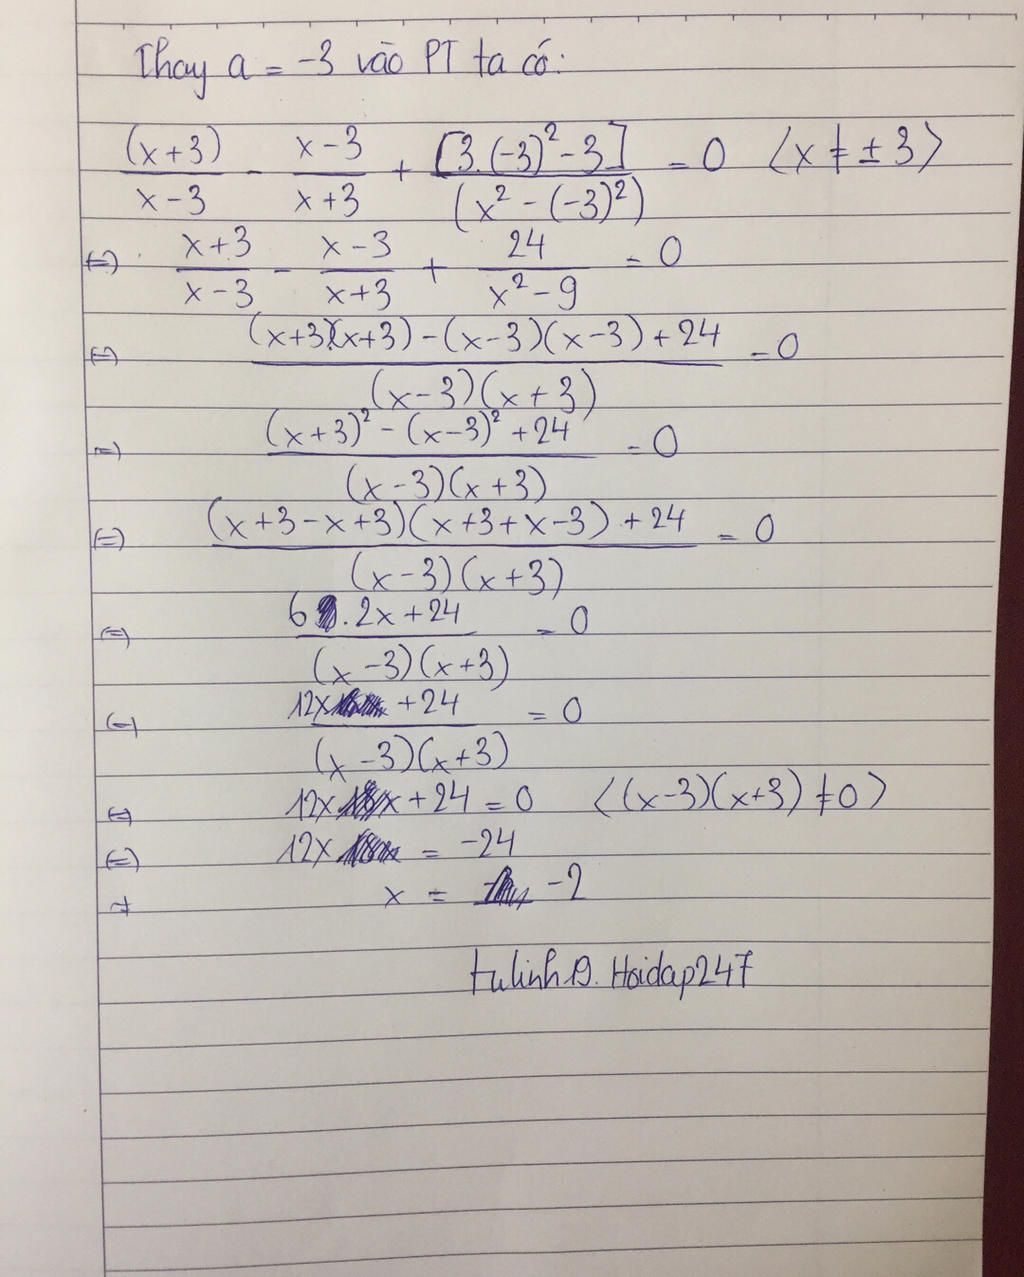 Thay a = -3 vào PT ta có:
(x+3)/(x-3) - (x-3)/(x+3) + [3.(-3)²-3]/(x²-(-3)²) = 0 <x ≠ ±3>
(=) (x+3)/(x-3) - (x-3)/(x+3) + 24/(x²-9) = 0
(=) ((x+3)(x+3) - (x-3)(x-3) + 24)/((x-3)(x+3)) = 0
(=) ((x+3)² - (x-3)² + 24)/((x-3)(x+3)) = 0
(=) ((x+3-x+3)(x+3+x-3) + 24)/((x-3)(x+3)) = 0
(=) (6.2x+24)/((x-3)(x+3)) = 0
(=) (12x+24)/((x-3)(x+3)) = 0
(=) 12x + 24 = 0 <(x-3)(x+3) ≠ 0>
(=) 12x = -24
x = -2
tulinh19. Hoidap247